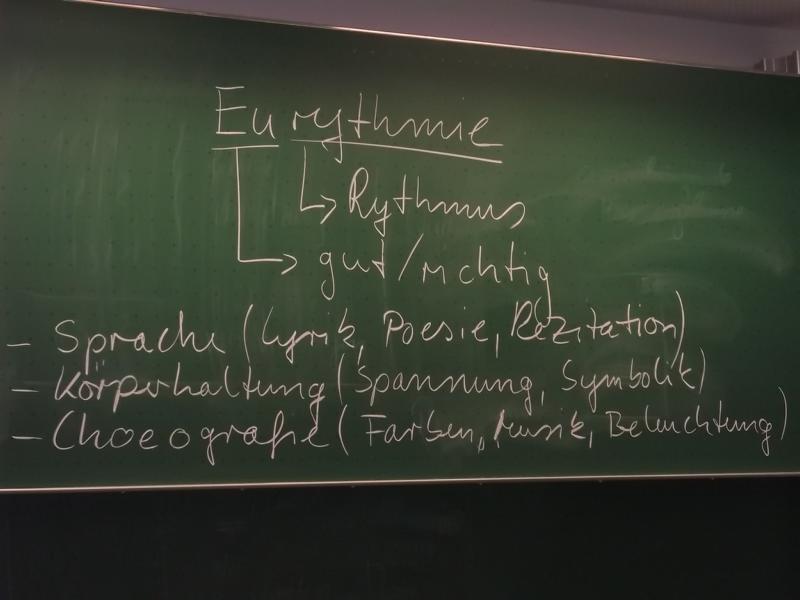 Eurythmie
Rythmus
gut/richtig
- Sprache (Lyrik, Poesie, Rezitation)
- Körperhaltung (Spannung, Symbolik)
- Choeografie (Farben, Musik, Beleuchtung)